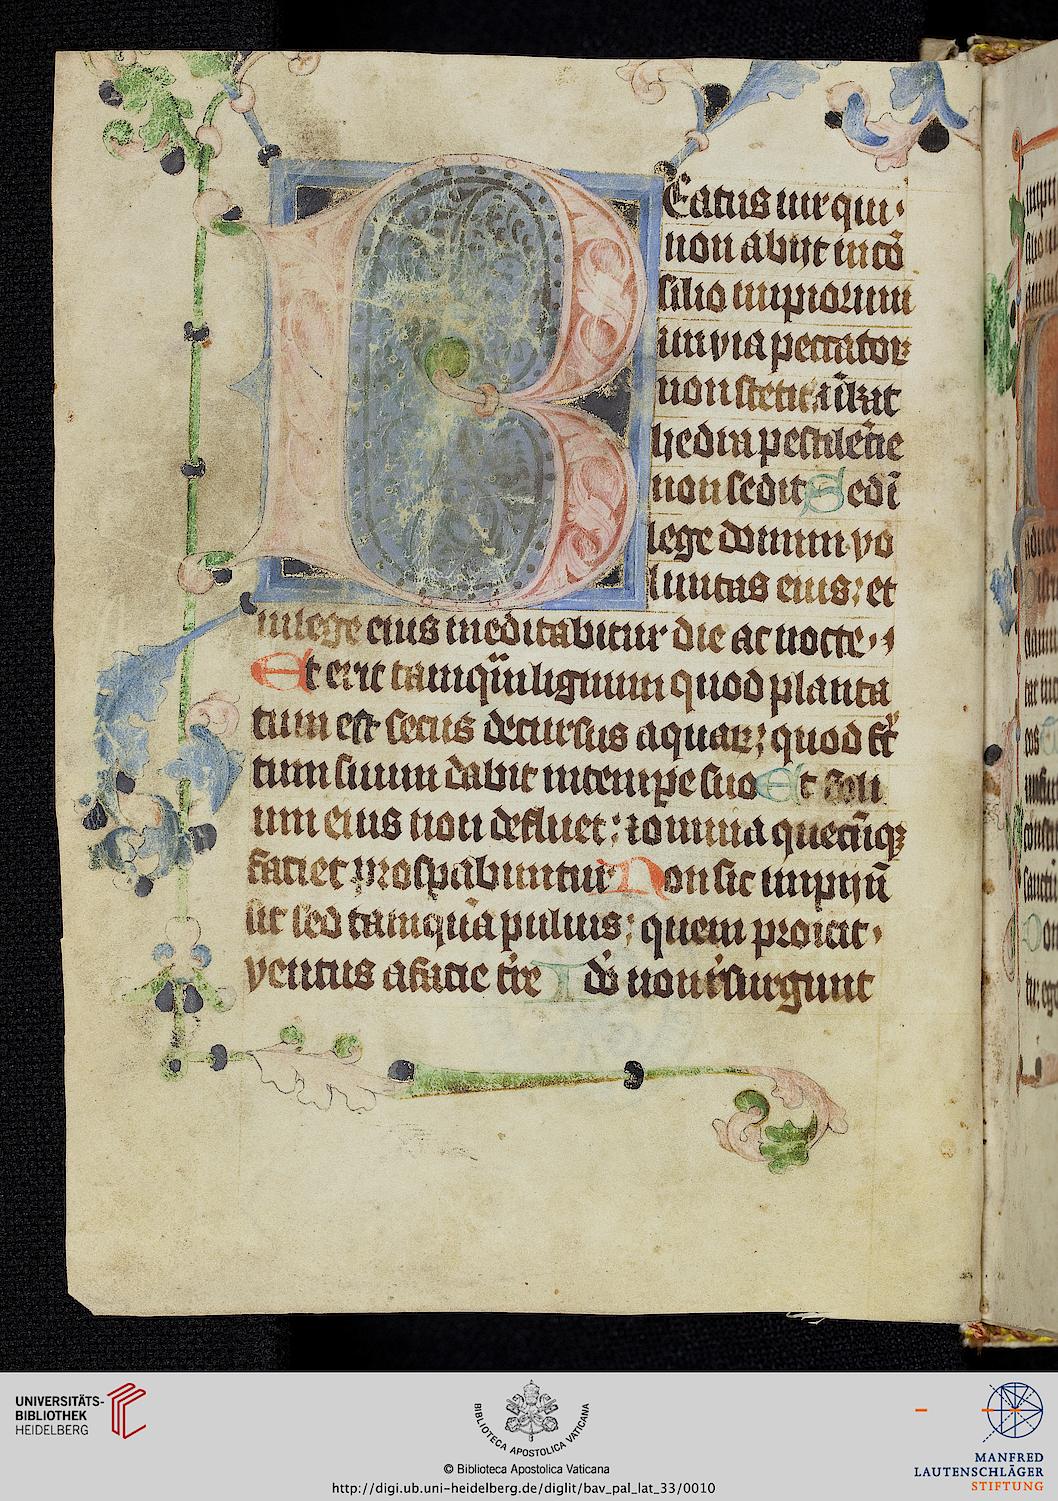 Eatus uir qui
non abijt in cō
silio impiorum
in via peccator
non stetit ⁊ ī kat
hedra pestilētie
non sedit Sed ī
lege domini vo
luntas eius; et
in lege eius meditabitur die ac nocte
Et erit tamqͣm lignum quod planta
tum est secus decursus aquarꝫ quod fͬc
tum suum dabit in tempe suo Et foli
um eius non defluet; ⁊ omnia quecūqꝫ
faciet prosꝑabuntur Non sic impij nō
sic sed tamquā puluis; quem proicit
ventus a facie tr̄e Ido non rͤsurgunt
UNIVERSITÄTS-
BIBLIOTHEK
HEIDELBERG
BIBLIOTECA APOSTOLICA VATICANA
© Biblioteca Apostolica Vaticana
http://digi.ub.uni-heidelberg.de/diglit/bav_pal_lat_33/0010
MANFRED
LAUTENSCHLÄGER
STIFTUNG